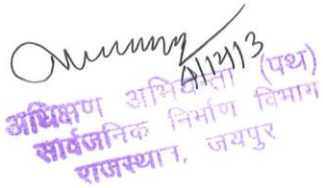 4/12/13
अधिक्षण अभियन्ता (पथ)
सार्वजनिक निर्माण विभाग
राजस्थान, जयपुर